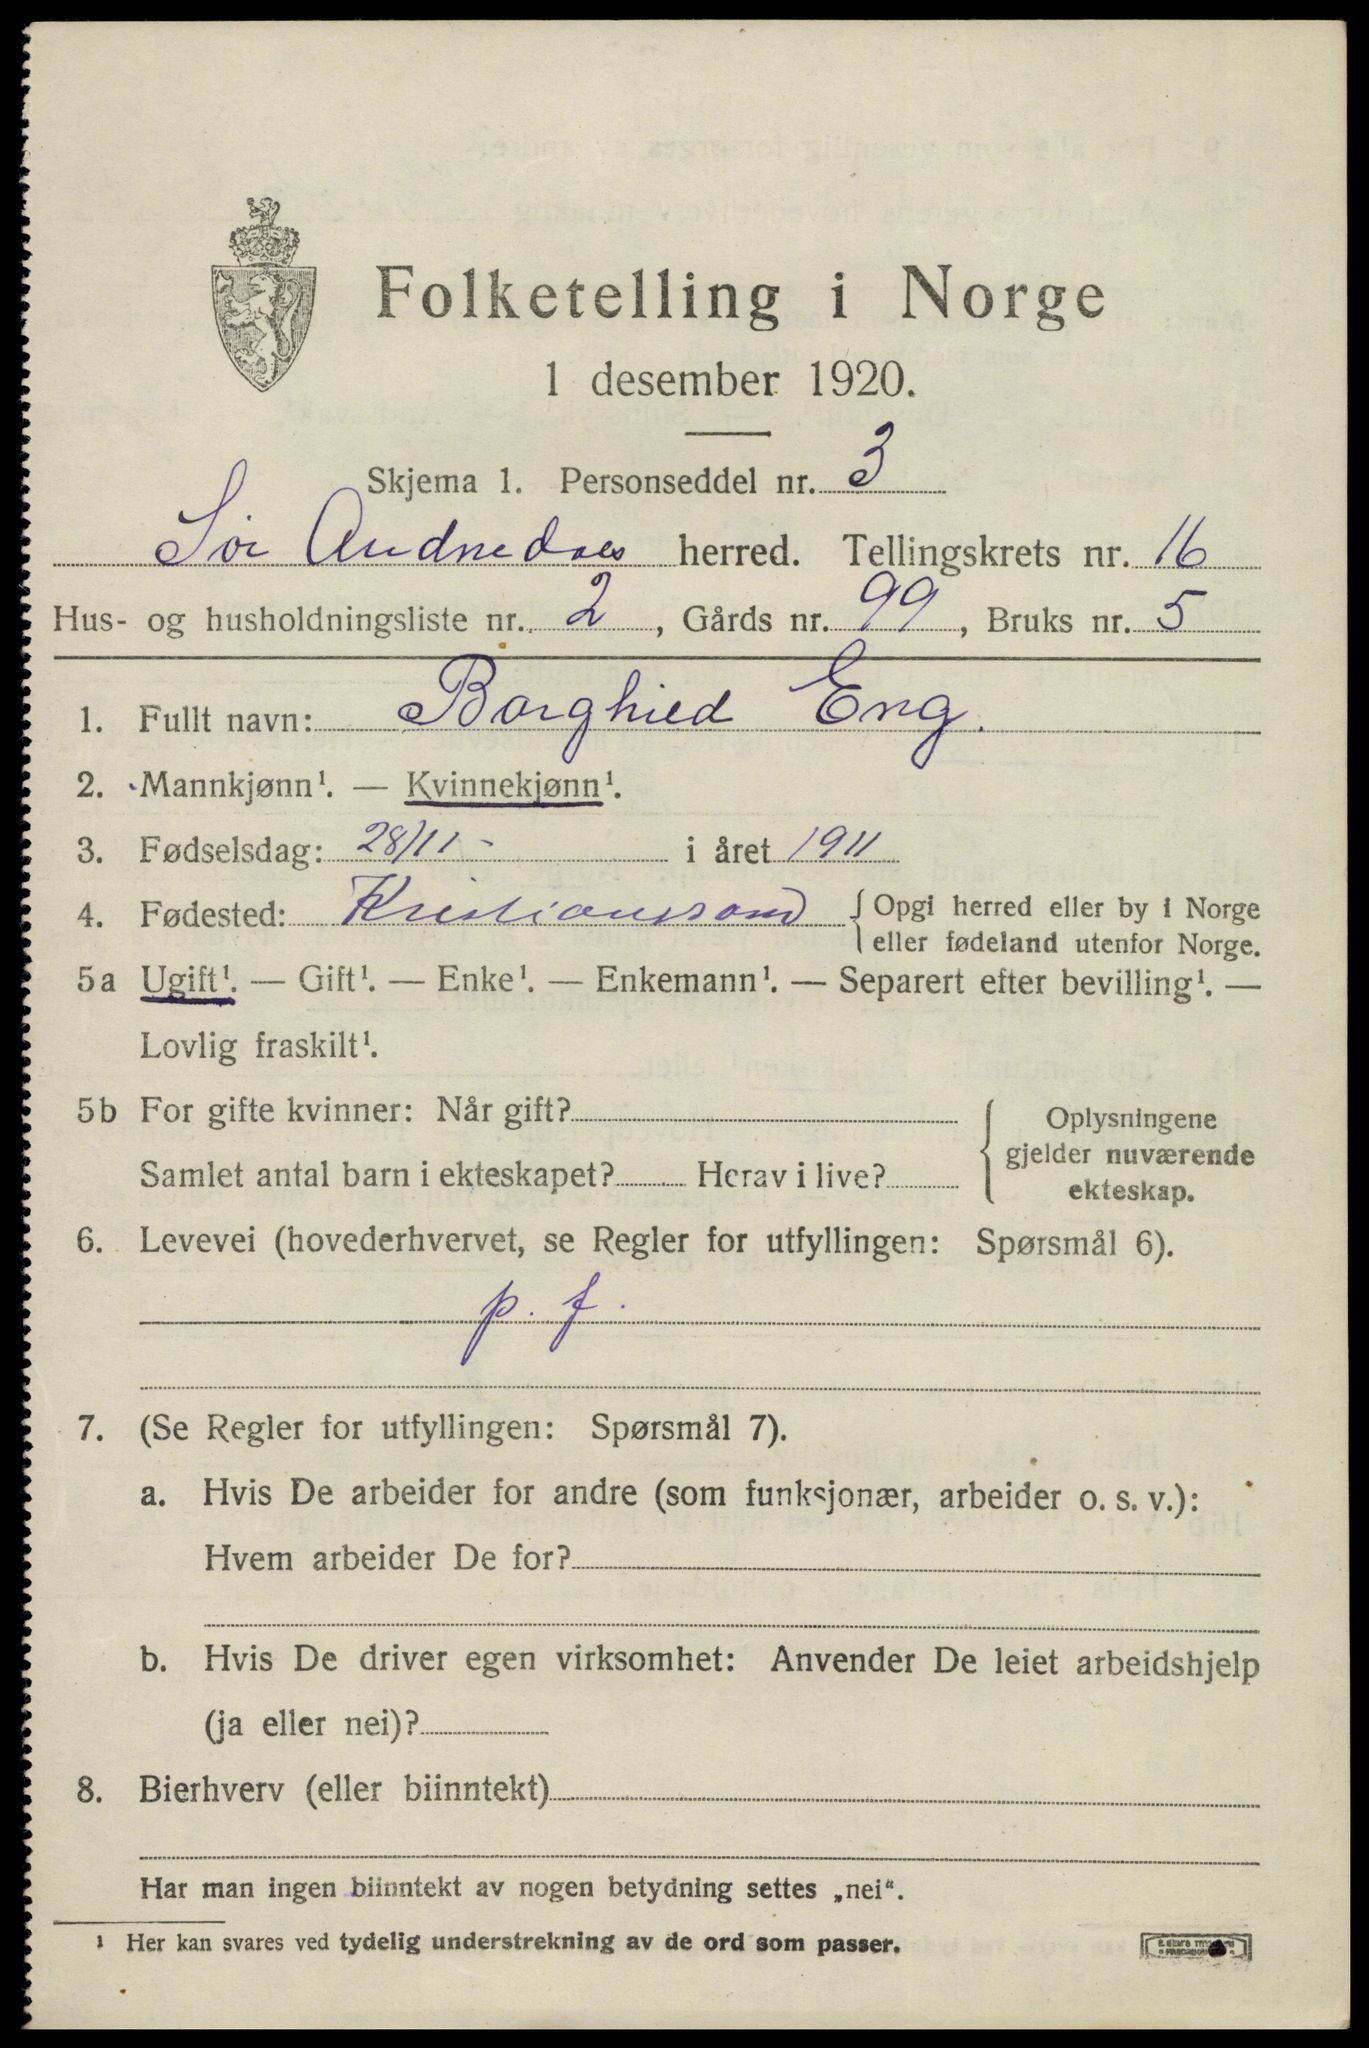 Folketelling i Norge
1 desember 1920.
Skjema 1. Personseddel nr. 3
Sør Audnedals herred. Tellingskrets nr. 16
Hus- og husholdningsliste nr. 2, Gårds nr. 99, Bruks nr. 5
1. Fullt navn: Borghild Eng.
2. Mannkjønn¹. — Kvinnekjønn¹.
3. Fødselsdag: 28/11 - i året 1911
4. Fødested: Kristianssand { Opgi herred eller by i Norge
eller fødeland utenfor Norge.
5a Ugift¹. — Gift¹. — Enke¹. — Enkemann¹. — Separert efter bevilling¹. —
Lovlig fraskilt¹.
5b For gifte kvinner: Når gift?
Samlet antal barn i ekteskapet? Herav i live?
Oplysningene
gjelder nuværende
ekteskap.
6. Levevei (hovederhvervet, se Regler for utfyllingen: Spørsmål 6).
p. f.
7. (Se Regler for utfyllingen: Spørsmål 7).
a. Hvis De arbeider for andre (som funksjonær, arbeider o. s. v.):
Hvem arbeider De for?
b. Hvis De driver egen virksomhet: Anvender De leiet arbeidshjelp
(ja eller nei)?
8. Bierhverv (eller biinntekt)
Har man ingen biinntekt av nogen betydning settes „nei“.
¹ Her kan svares ved tydelig understrekning av de ord som passer.